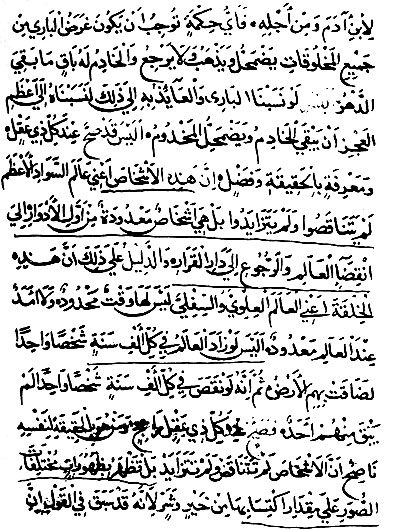 لابن آدم ومن أجله، فأي حكمة توجب أن يكون غرض الباري من
جميع المخلوقات يضمحل ويذهب لا يرجع والخادم له باق ما بقي
الدهر لو نسبنا الباري والعائذ به إلى ذلك لنسبناه إلى أعظم
العجز أن يبقى الخادم ويضمحل المخدوم، أليس قد صح عند كل ذي عقل
ومعرفة بالحقيقة وفضل، إن هذه الأشخاص أعني عالم السواد الأعظم
لم يتناقصوا ولم يتزايدوا بل هي أشخاص معدودة من أول الأدوار إلى
انقضاء العالم والرجوع إلى دار القرار، والدليل على ذلك أن هذه
الخلقة أعني العالم العلوي والسفلي ليس لها وقت محدود، ولا أمد
عند العالم معدود، أليس لو زاد العالم في كل ألف سنة شخصا واحدا
لضاقت بهم الأرض، ثم أنه لو نقص في كل ألف سنة شخصا واحدا لم
يبق منهم أحد، فصح عند كل ذي عقل راجح ومن هو بالحقيقة لنفسه
ناصح أن الأشخاص لم تتناقص ولم تتزايد بل تظهر بظهورات مختلفات
الصور على مقدار اكتسابها من خير وشر لأنه قد سبق في القول